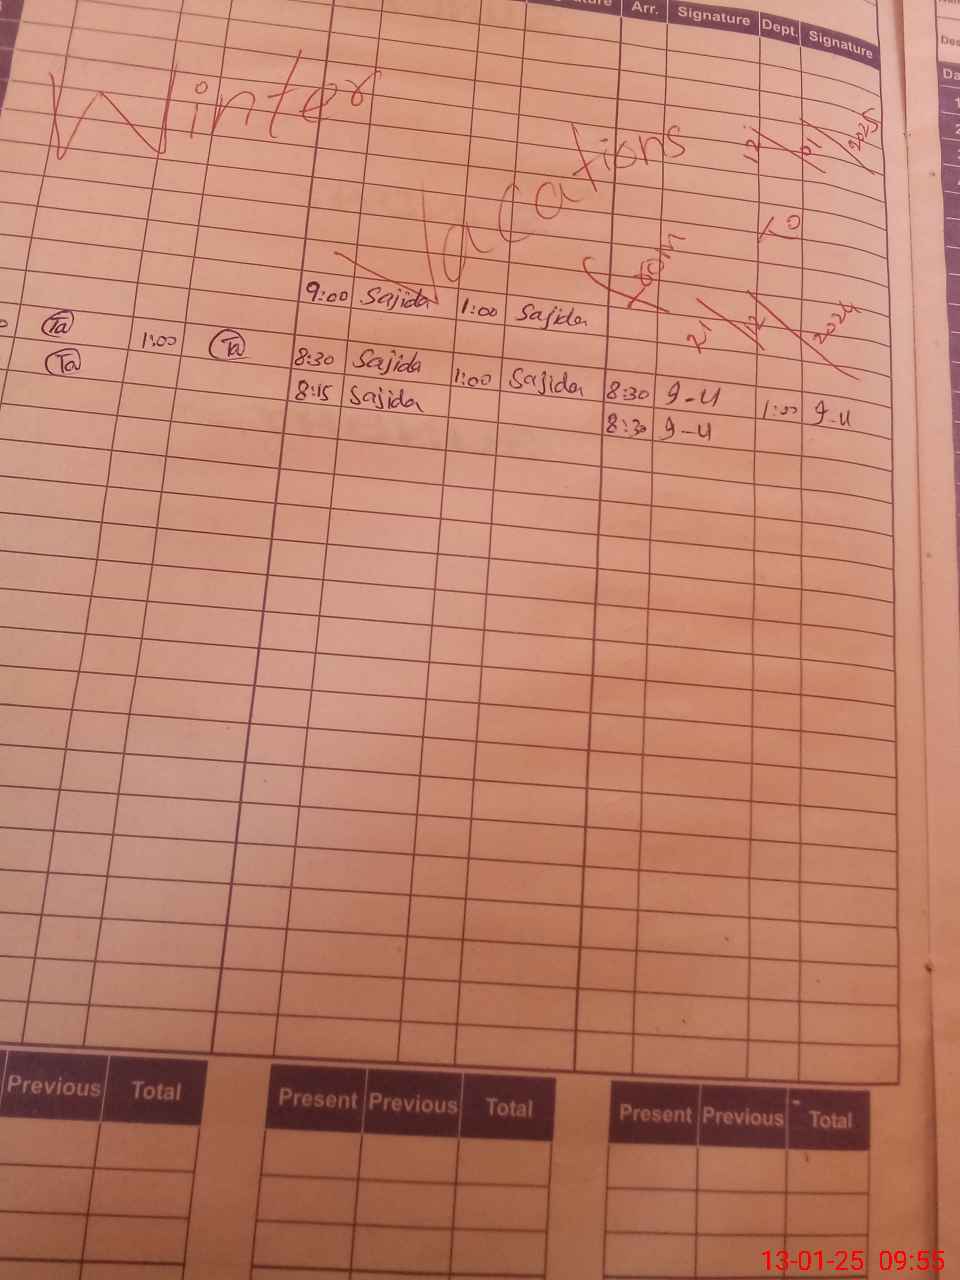 Arr. Signature Dept. Signature
Winter Vacations
From 21/12/2024
TO
12/01/2025
9:00 Sajida 1:00 Sajida
Ta 1:00 Ta 8:30 Sajida 1:00 Sajida 8:30 g-u 1:00 g-u
Ta 8:15 Sajida 8:30 g-u
Previous Total Present Previous Total Present Previous Total
13-01-25 09:55